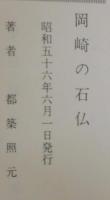 岡崎の石仏
昭和五十六年六月一日発行
著者　都築照元